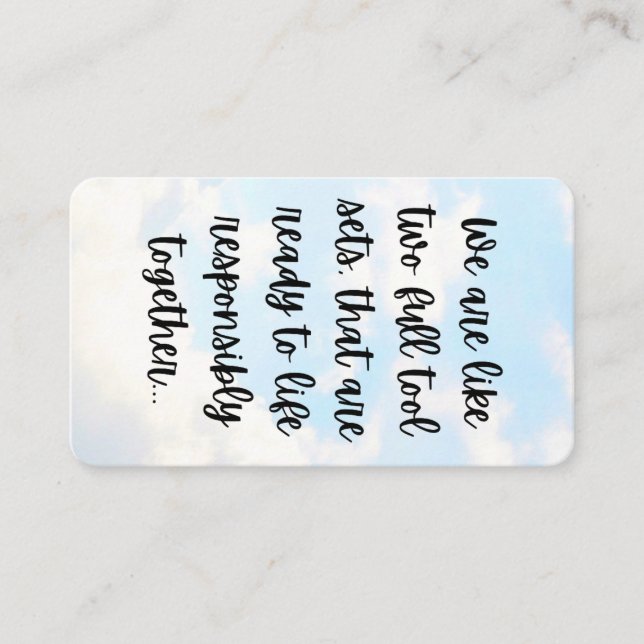 We are like
two full tool
sets, that are
ready to life
responsibly
together...